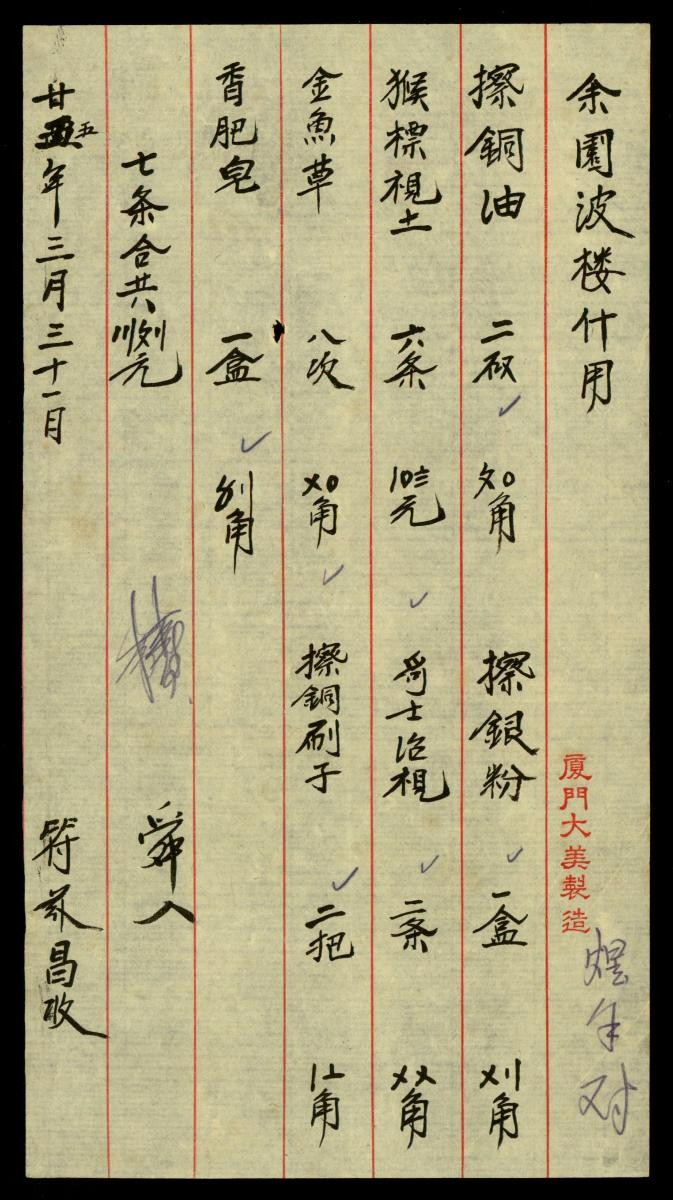 余園波楼什用
廈門大美製造
擦銅油 二 〤0角 擦銀粉 一盒 〤〡角
猴標視土 六条 元 士泊視 二条 〤〤角
金魚草 八次 〤0角 擦銅刷子 二把 〡〦角
香肥皂 一盒 角
七条合共 元 舜入
廿五年三月三十一日 符 昌收